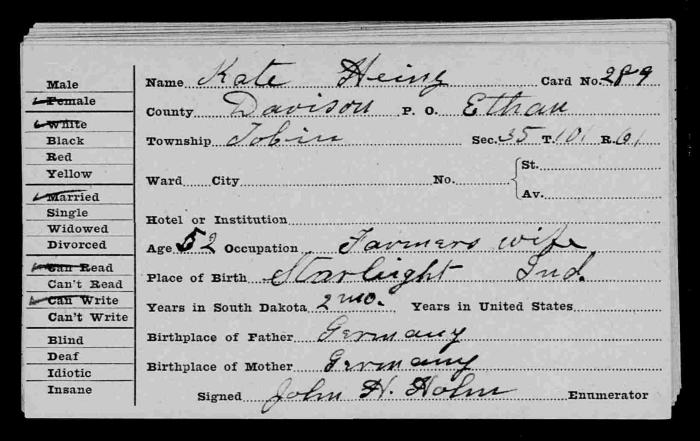 Male
Female
White
Black
Red
Yellow
Married
Single
Widowed
Divorced
Can Read
Can't Read
Can Write
Can't Write
Blind
Deaf
Idiotic
Insane
Name Kate Heinz Card No. 289
County Davison P. O. Ethan
Township Tobin Sec. 35 T. 101 R. 61
Ward City No. St.
Av.
Hotel or Institution
Age 52 Occupation Farmers wife
Place of Birth Starlight Ind.
Years in South Dakota 2 mo. Years in United States
Birthplace of Father Germany
Birthplace of Mother Germany
Signed John H. Holm Enumerator